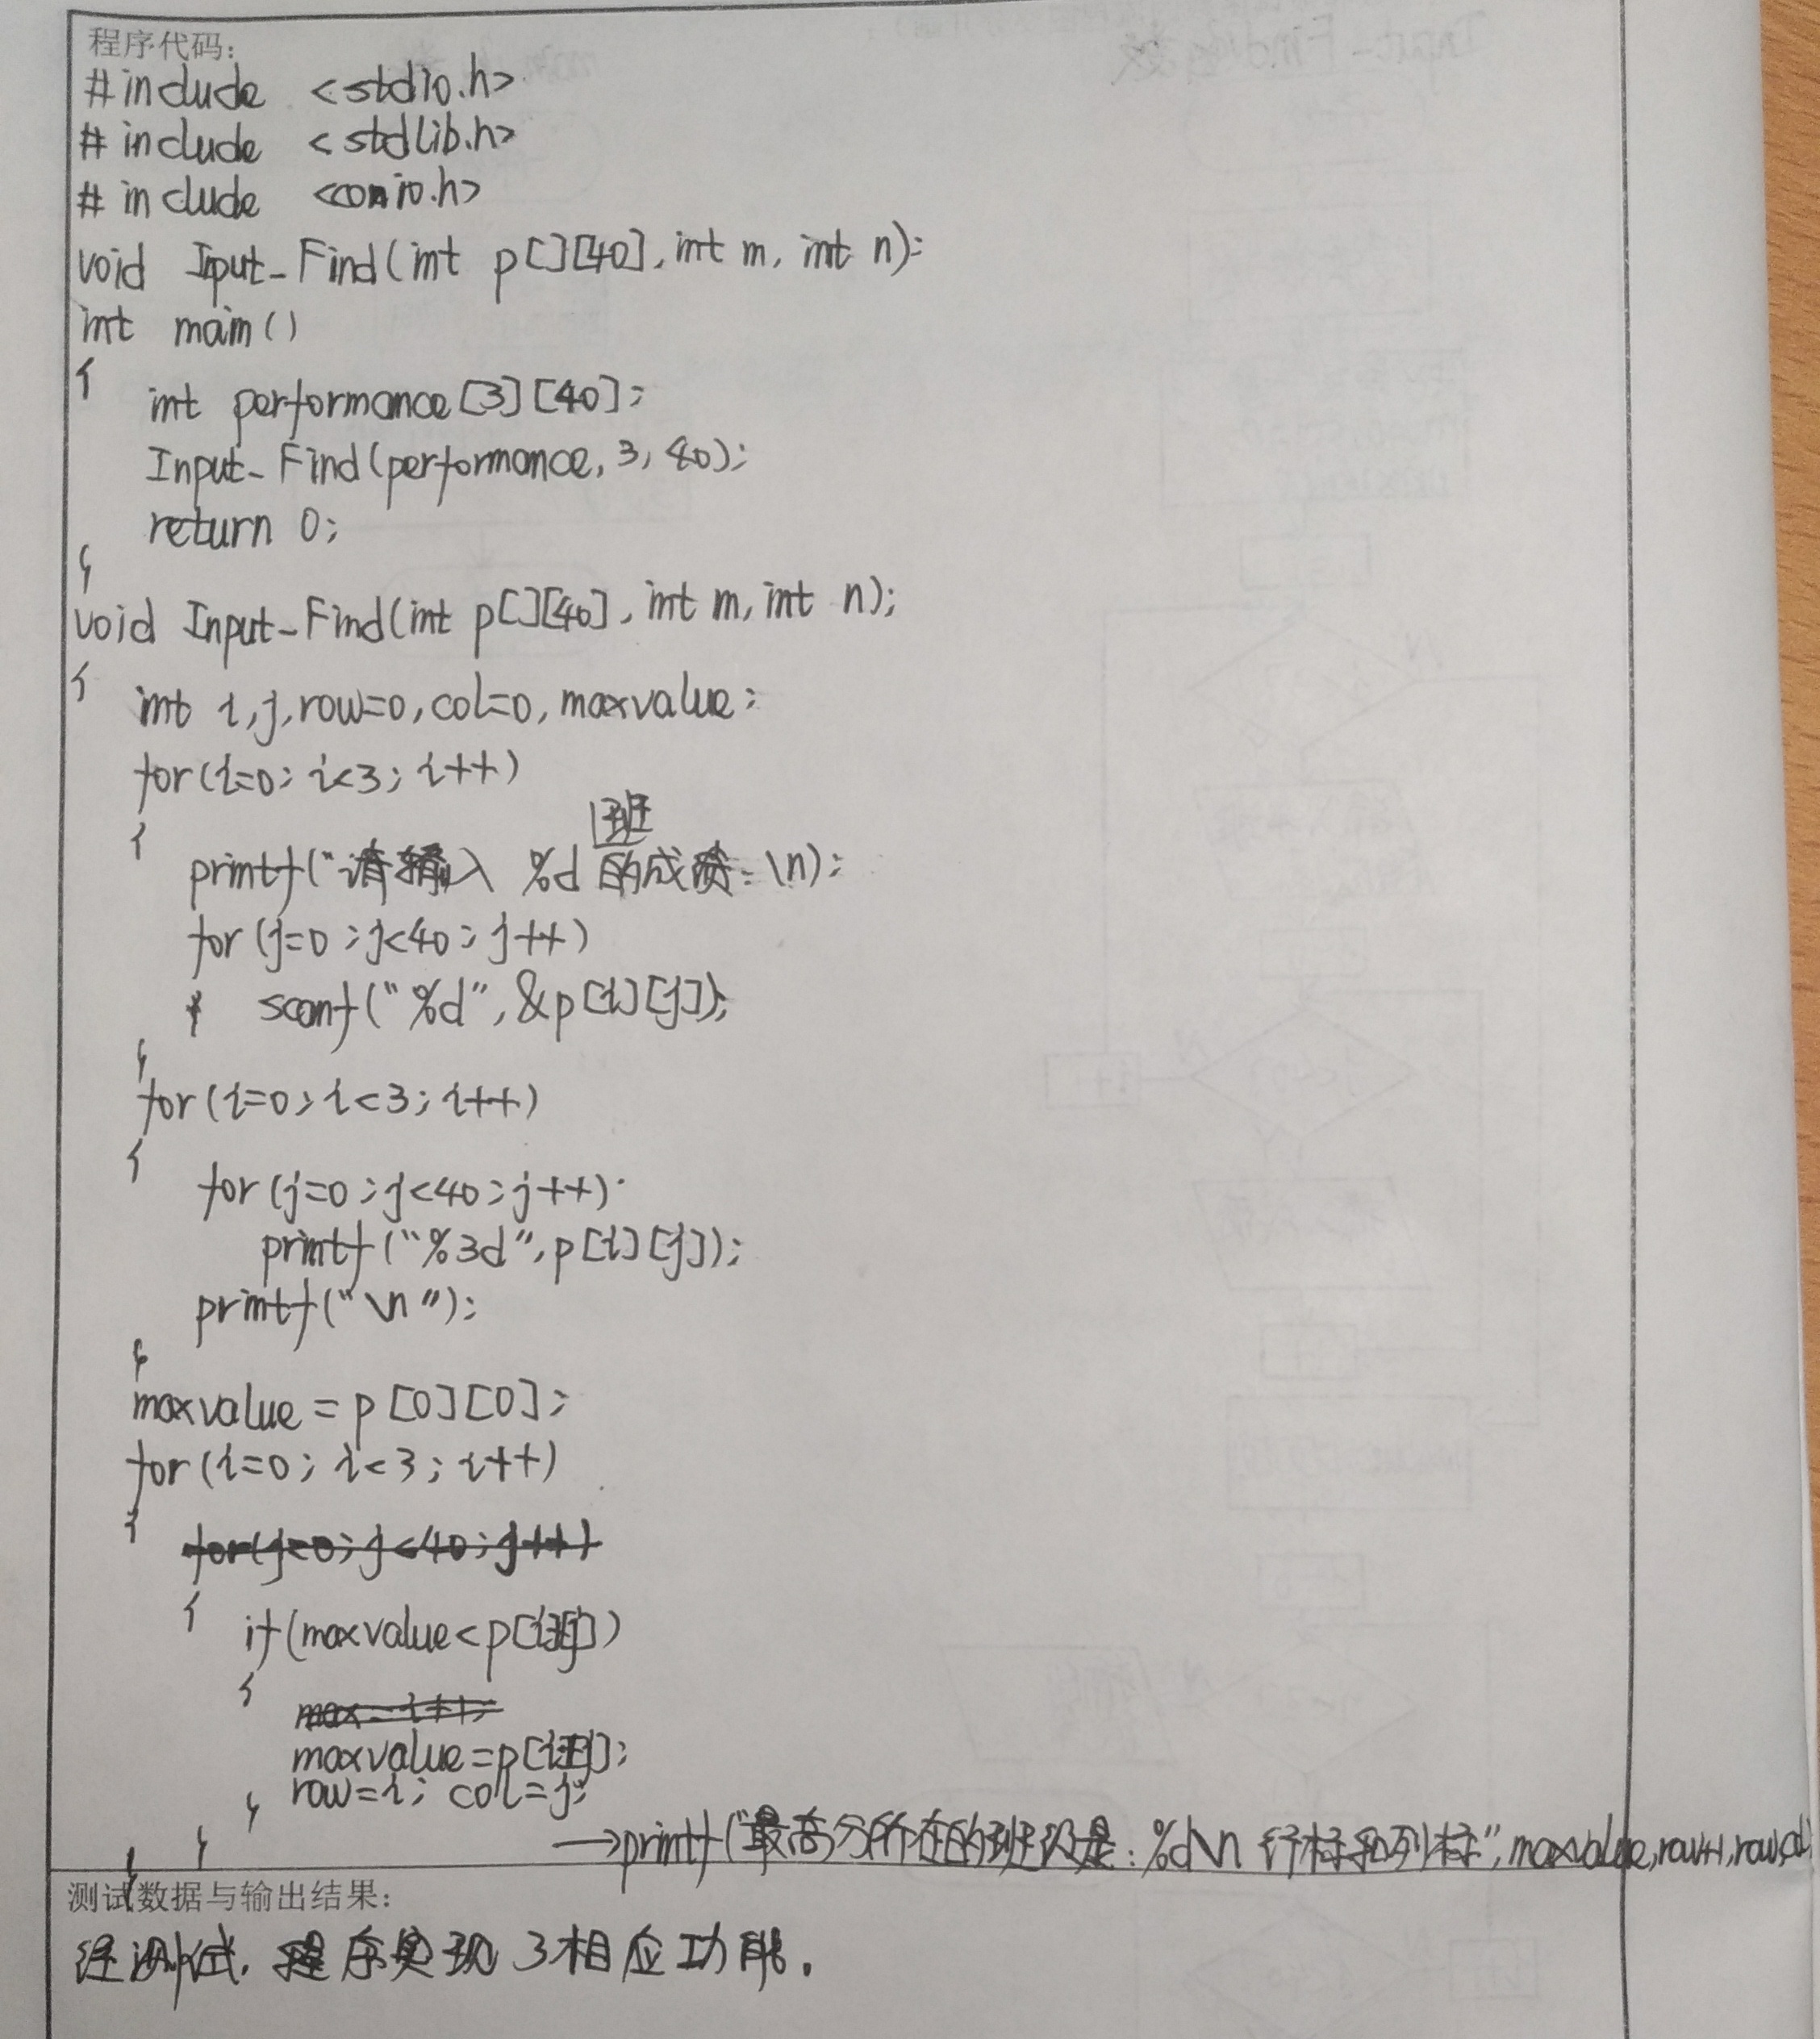 程序代码:
#include <stdio.h>
#include <stdlib.h>
#include <conio.h>
void Input_Find(int p[][40],int m,int n);
int main()
{
int performance[3][40];
Input_Find(performance,3,40);
return 0;
}
void Input_Find(int p[][40],int m,int n);
{
int i,j,row=0,col=0,maxvalue;
for(i=0;i<3;i++)
{
printf("请输入 %d 班的成绩:\n);
for(j=0;j<40;j++)
scanf("%d",&p[i][j]);
}
for(i=0;i<3;i++)
{
for(j=0;j<40;j++)
printf("%3d",p[i][j]);
printf("\n");
}
maxvalue=p[0][0];
for(i=0;i<3;i++)
{
for(j=0;j<40;j++)
{
if(maxvalue<p[i][j])
{
max=i+1;
maxvalue=p[i][j];
row=i; col=j;
}
→printf("最高分所在的班级是:%d\n 行标和列标",maxvalue,row+1,row,col
}
}
测试数据与输出结果:
经测试,程序实现了相应功能.